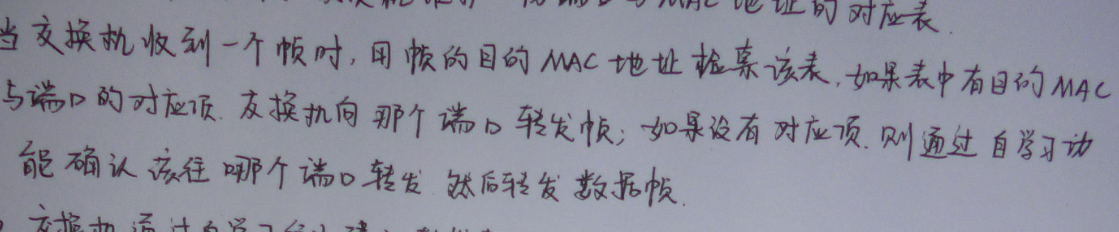 MAC地址的对应表.
当交换机收到一个帧时,用帧的目的MAC地址检索该表,如果表中有目的MAC
与端口的对应项.交换机向那个端口转发帧;如果没有对应项.则通过自学习功
能确认该往哪个端口转发.然后转发数据帧.
交换机通过自学习